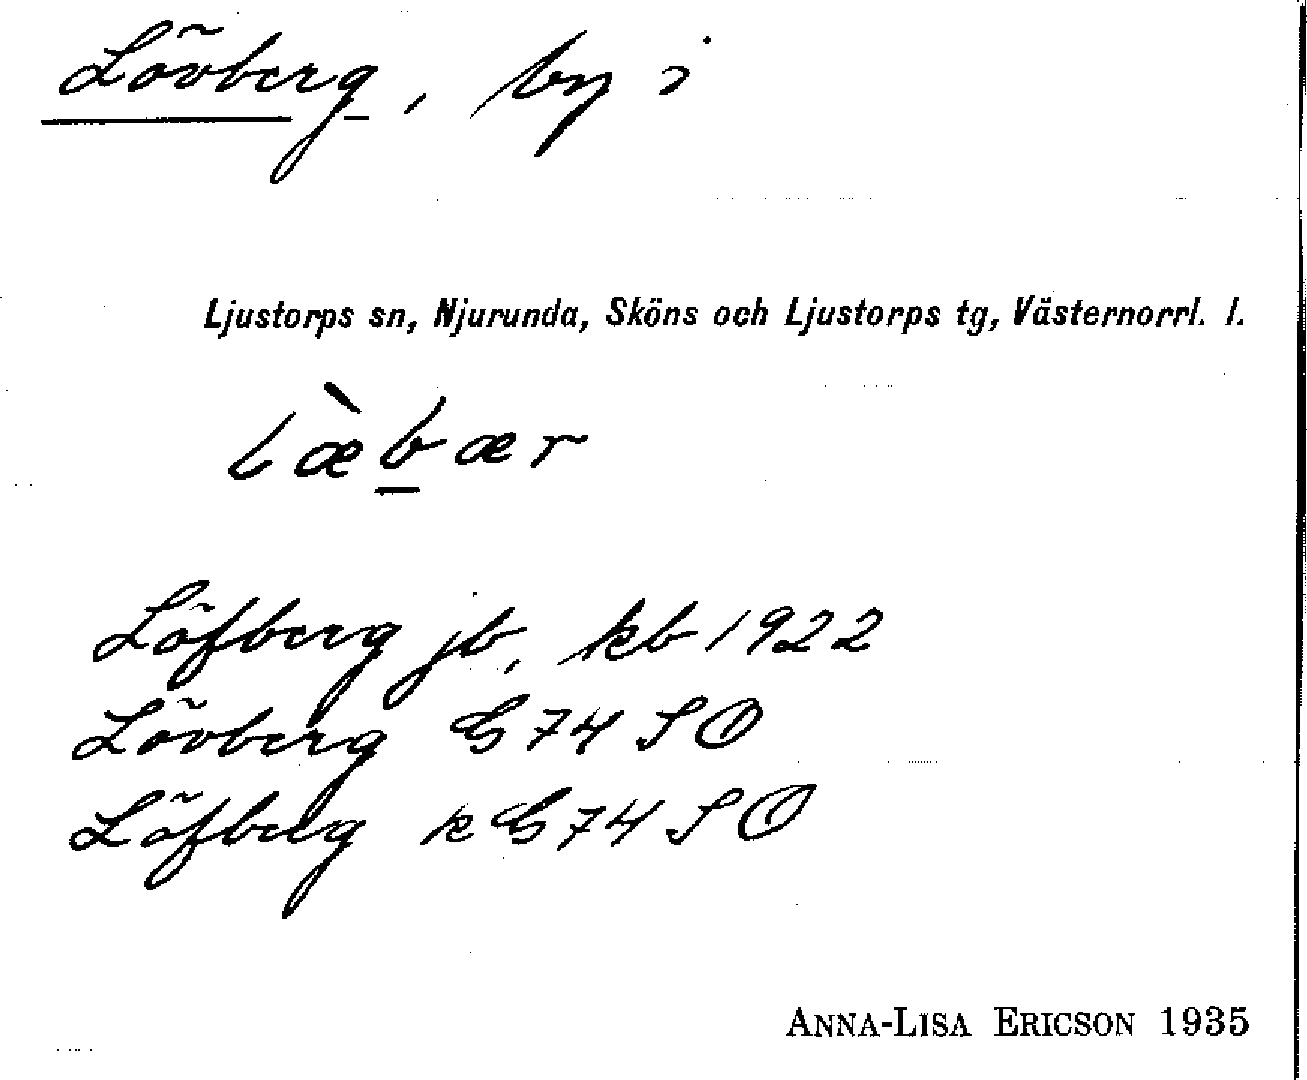 Lövberg, by i
Ljustorps sn, Njurunda, Sköns och Ljustorps tg, Västernorrl. l.
Löfberg jb, kb 1922
Lövberg G 74 SO
Löfberg k G 74 SO
ANNA-LISA ERICSON 1935